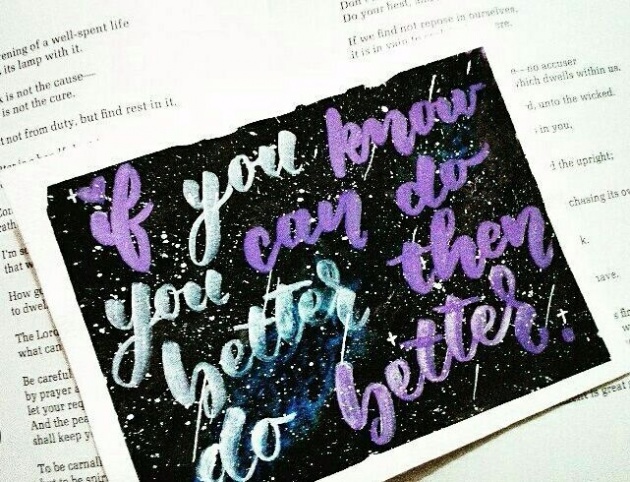 if you know
you can do
better then
do better.
ening of a well-spent life
its lamp with it.
is not the cause—
is not the cure.
not from duty, but find rest in it.
Do your best,
If we find not repose in ourselves,
it is in vain to
accuser
which dwells within us.
unto the wicked.
in you,
the upright;
chasing its
k.
save.
I'm
that
How
to dwel
The Lord
what can
Be careful
by prayer
let your req
And the pea
shall keep
To be carnall
is great